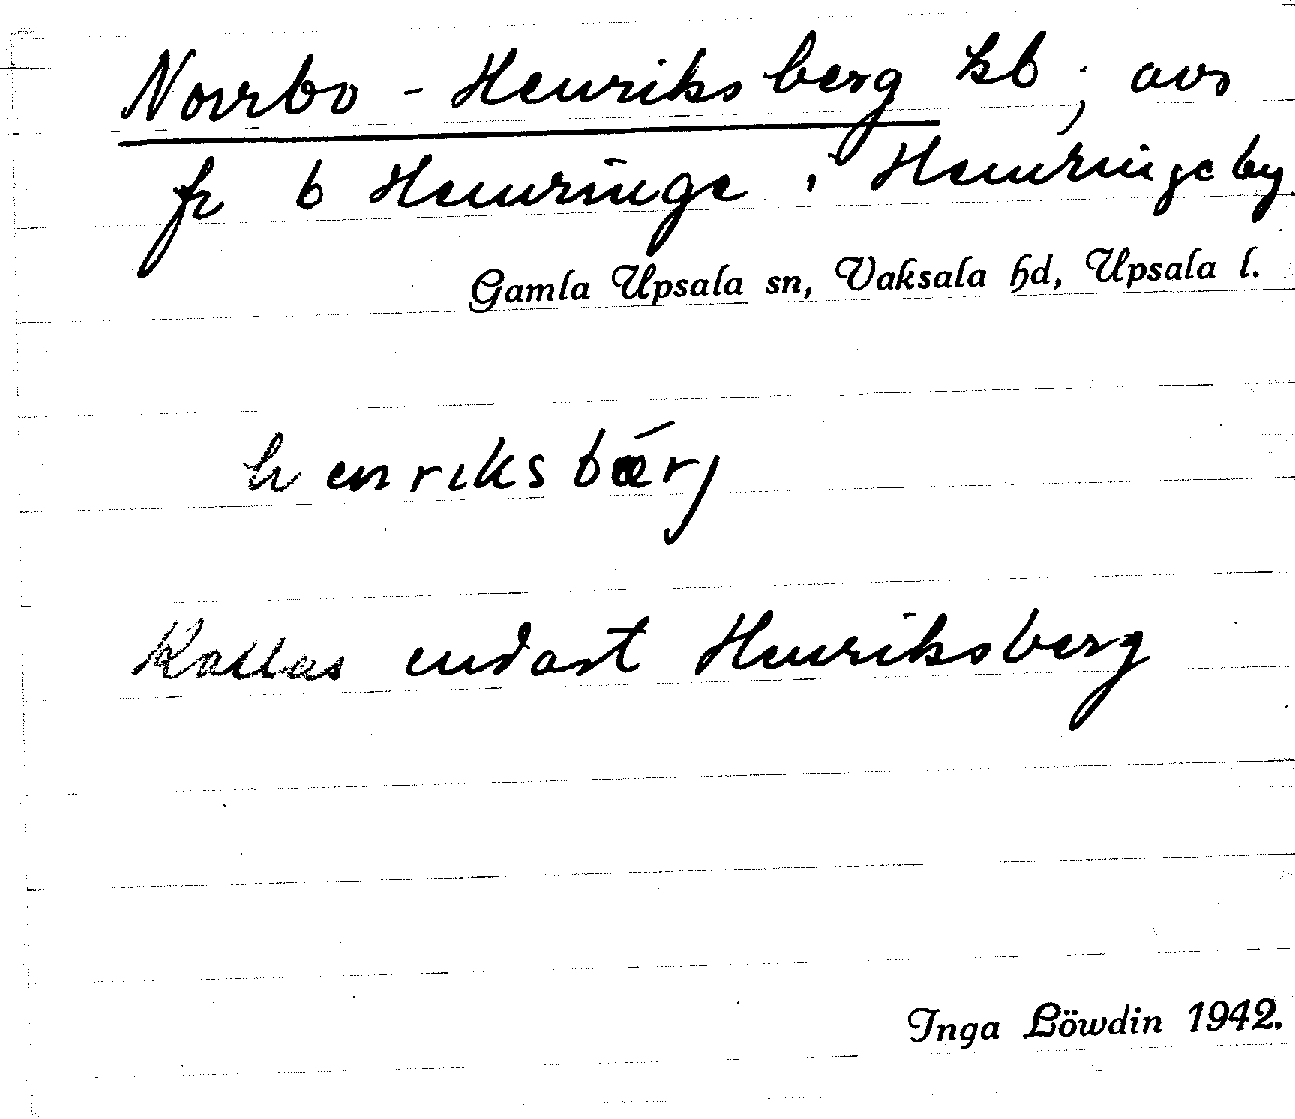 Norrbo - Henriksberg kb; avs
fr b Hemringe i Hemringeby
Gamla Upsala sn, Vaksala hd, Upsala l.
henriksbærj
Kallas endast Henriksberg
Inga Löwdin 1942.